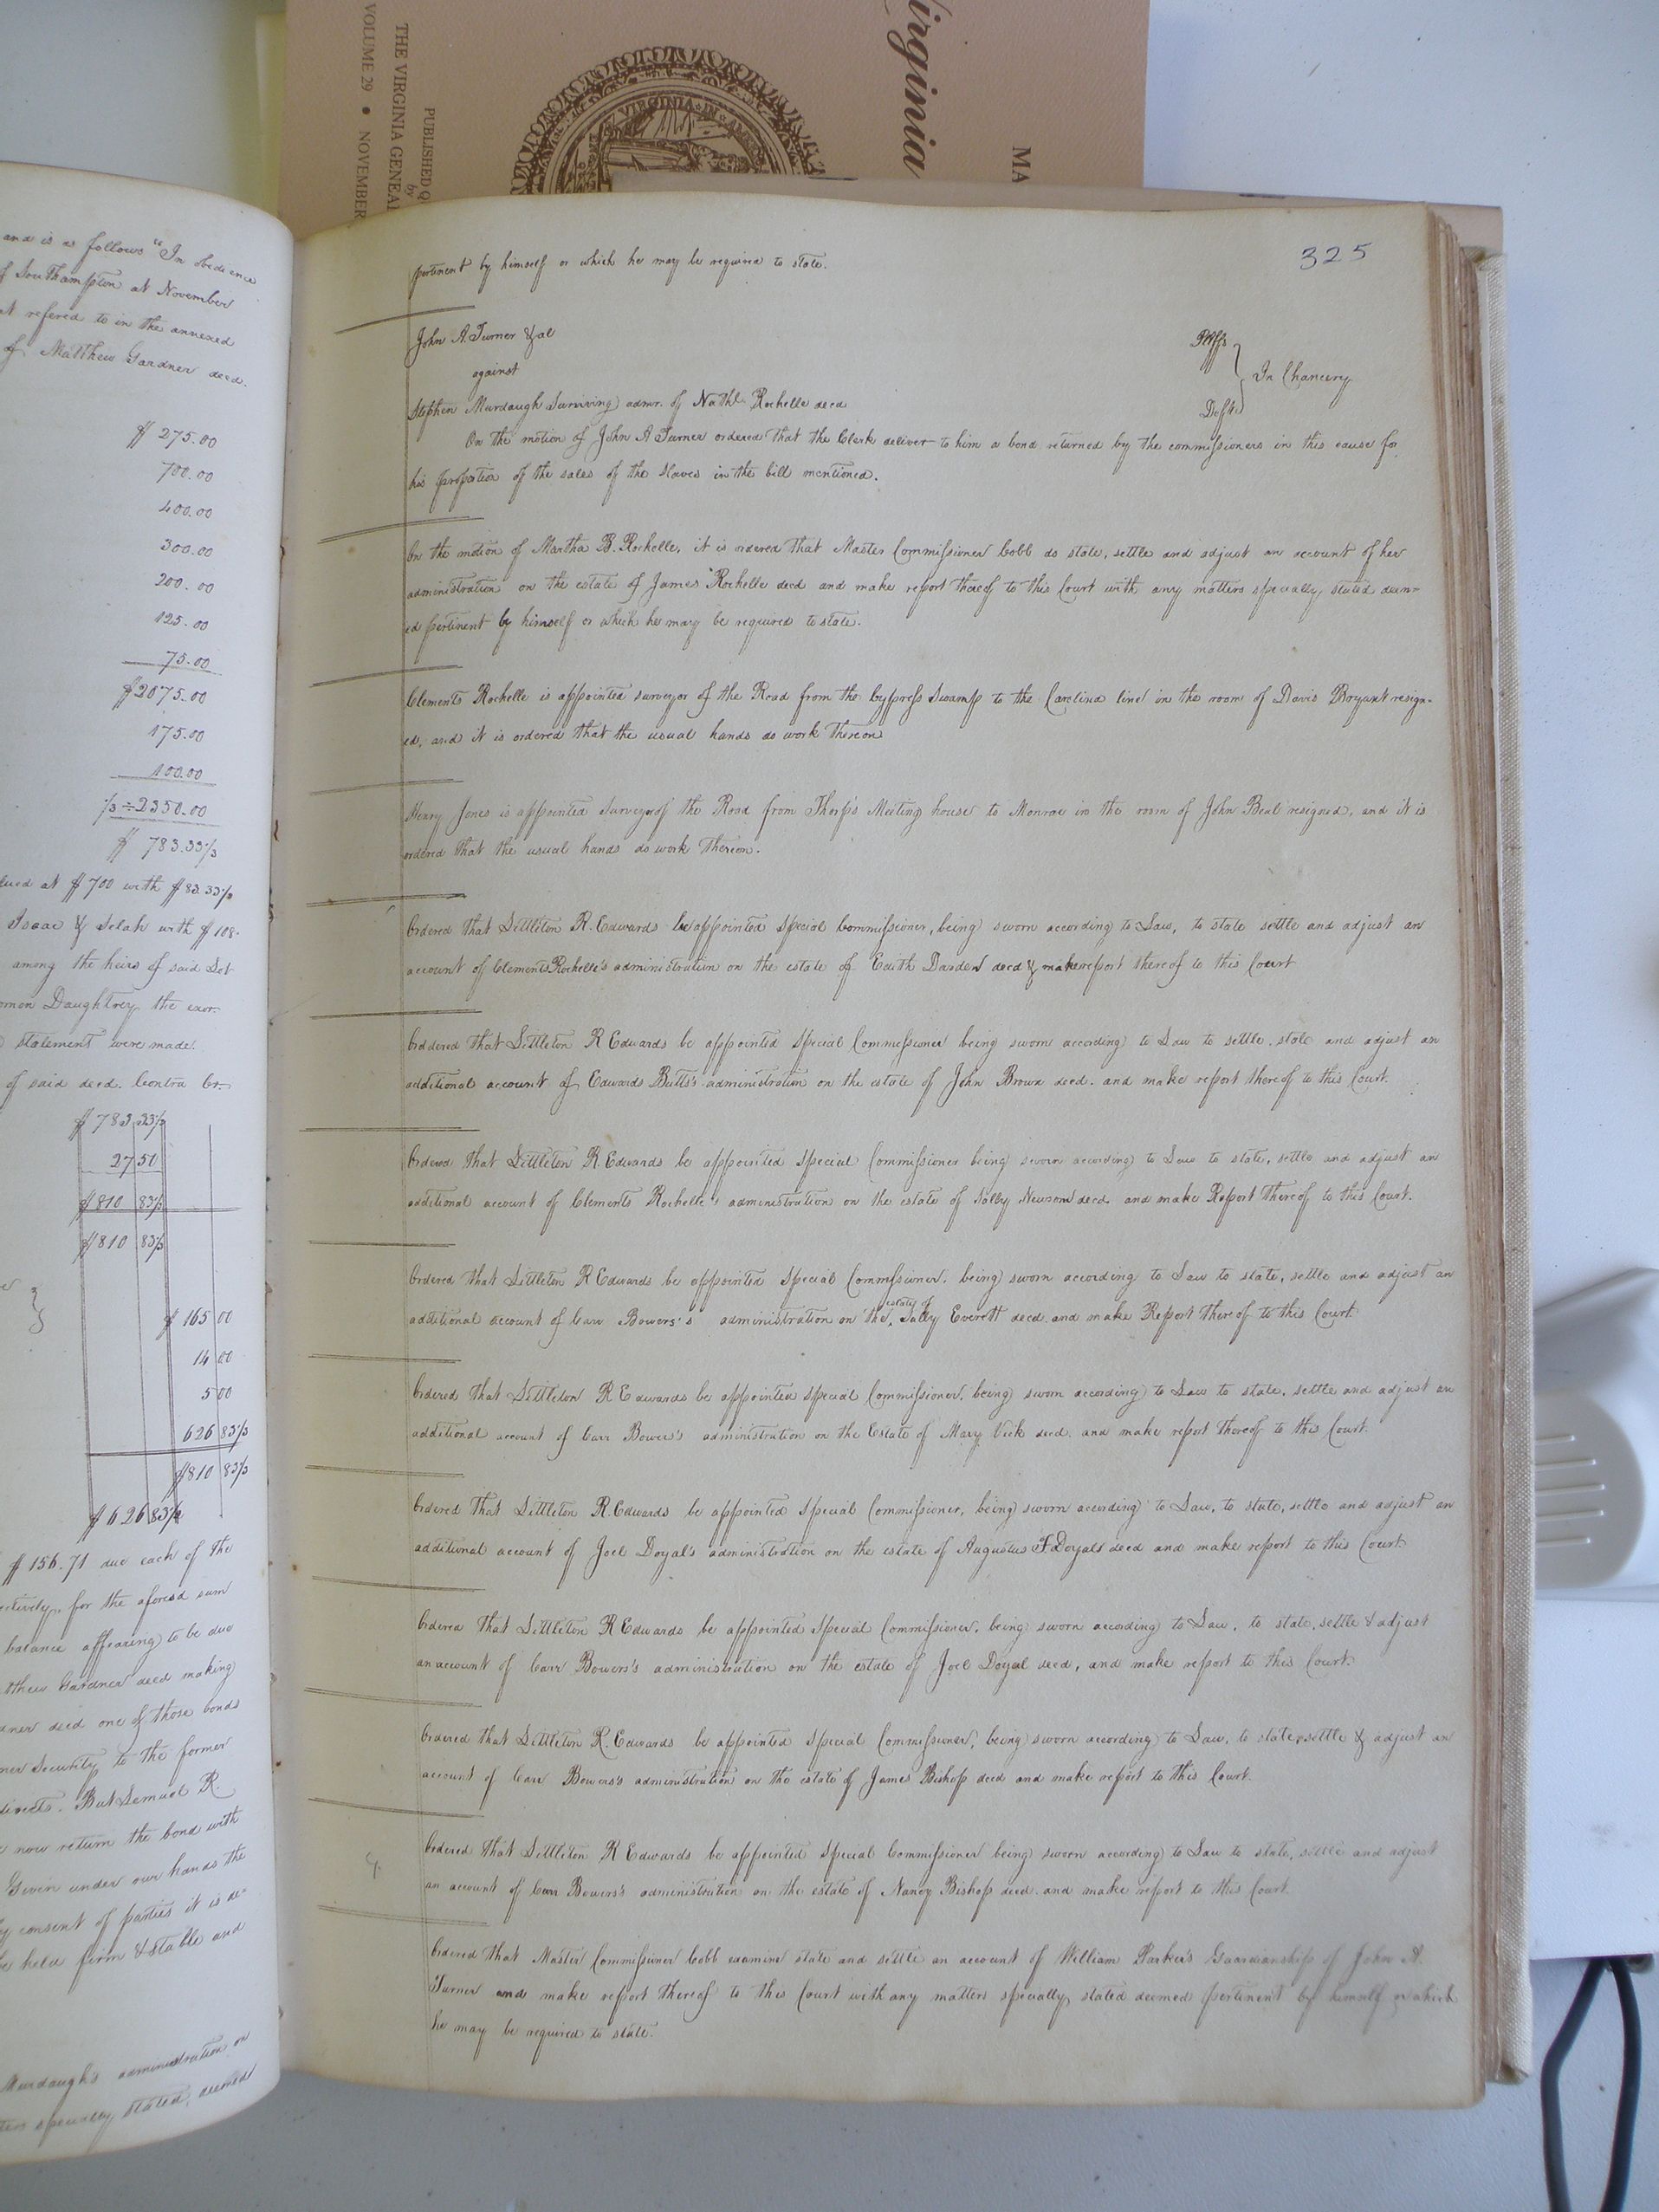 Virginia
MA
PUBLISHED Q
by
THE VIRGINIA GENEAL
VOLUME 29 • NOVEMBER
VIRGINIA IN
and is as follows "In obedience
of Southampton at November
refered to in the annexed
of Matthew Gardner decd.
$ 275.00
700.00
400.00
300.00
200.00
125.00
75.00
$2075.00
175.00
100.00
⅓ ÷ 2350.00
$ 783.33⅓
at $700 with $83.33⅓
Isaac & Selah with $108.
among the heirs of said
Daughtrey the exor.
statement were made.
of said decd. Contra Cr.
$ 783 33⅓
27 50
$810 83⅓
$810 83⅓
$ 165 00
14 00
5 00
626 83⅓
$810 83⅓
$626 83⅓
$156.71 due each of the
for the aforesd sum
balance appearing to be due
Gardner decd making
decd one of those bonds
Security to the former
But Lemuel R.
now return the bond with
Given under our hands the
consent of parties it is de-
held firm & stable and
Murdaugh's administration on
specially stated, deemed
325
pertinent by himself or which he may be required to state.
John A. Turner & al Pltffs
against In Chancery
Stephen Murdaugh Surviving admr. of Nathl. Rochelle decd Defts
On the motion of John A Turner ordered that the Clerk deliver to him a bond returned by the commissioners in this cause for
his proportion of the sales of the slaves in the bill mentioned.
On the motion of Martha B. Rochelle, it is ordered that Master Commissioner Cobb do state, settle and adjust an account of her
administration on the estate of James Rochelle decd and make report thereof to this Court with any matters specially stated deem-
ed pertinent by himself or which he may be required to state.
Clements Rochelle is appointed surveyor of the Road from the Cypress Swamp to the Carolina line in the room of Davis Bryant resign-
ed, and it is ordered that the usual hands do work thereon
Henry Jones is appointed Surveyor of the Road from Thorp's Meeting house to Monroe in the room of John Beal resigned, and it is
ordered that the usual hands do work thereon.
Ordered that Littleton R. Edwards be appointed Special Commissioner, being sworn according to Law, to state settle and adjust an
account of Clements Rochelle's administration on the estate of Edith Darden decd & make report thereof to this Court
Orddered that Littleton R Edwards be appointed Special Commissioner being sworn according to Law to settle, state and adjust an
additional account of Edwards Butts's administration on the estate of John Brown decd. and make report thereof to this Court.
Ordered that Littleton R Edwards be appointed Special Commissioner being sworn according to Law to state, settle and adjust an
additional account of Clements Rochelle's administration on the estate of Sally Newsom decd. and make Report thereof to this Court.
Ordered that Littleton R Edwards be appointed Special Commissioner, being sworn according to Law to state, settle and adjust an
additional account of Carr Bowers's administration on the estate of Sally Everett decd. and make Report thereof to this Court
Ordered that Littleton R Edwards be appointed Special Commissioner, being sworn according to Law to state, settle and adjust an
additional account of Carr Bowers's administration on the Estate of Mary Vick decd. and make report thereof to this Court.
Ordered that Littleton R. Edwards be appointed Special Commissioner, being sworn according to Law, to state, settle and adjust an
additional account of Joel Doyal's administration on the estate of Augustus F. Doyals decd and make report to this Court.
Ordered that Littleton R Edwards be appointed Special Commissioner, being sworn according to Law, to state, settle & adjust
an account of Carr Bowers's administration on the estate of Joel Doyal decd, and make report to this Court.
Ordered that Littleton R. Edwards be appointed Special Commissioner, being sworn according to Law, to state, settle & adjust an
account of Carr Bowers's administration on the estate of James Bishop decd and make report to this Court.
Ordered that Littleton R Edwards be appointed Special Commissioner being sworn according to Law to state, settle and adjust
an account of Carr Bowers's administration on the estate of Nancy Bishop decd. and make report to this Court
Ordered that Master Commissioner Cobb examine state and settle an account of William Parker's Guardianship of John A.
Turner and make report thereof to this Court with any matters specially stated deemed pertinent by himself or which
he may be required to state.